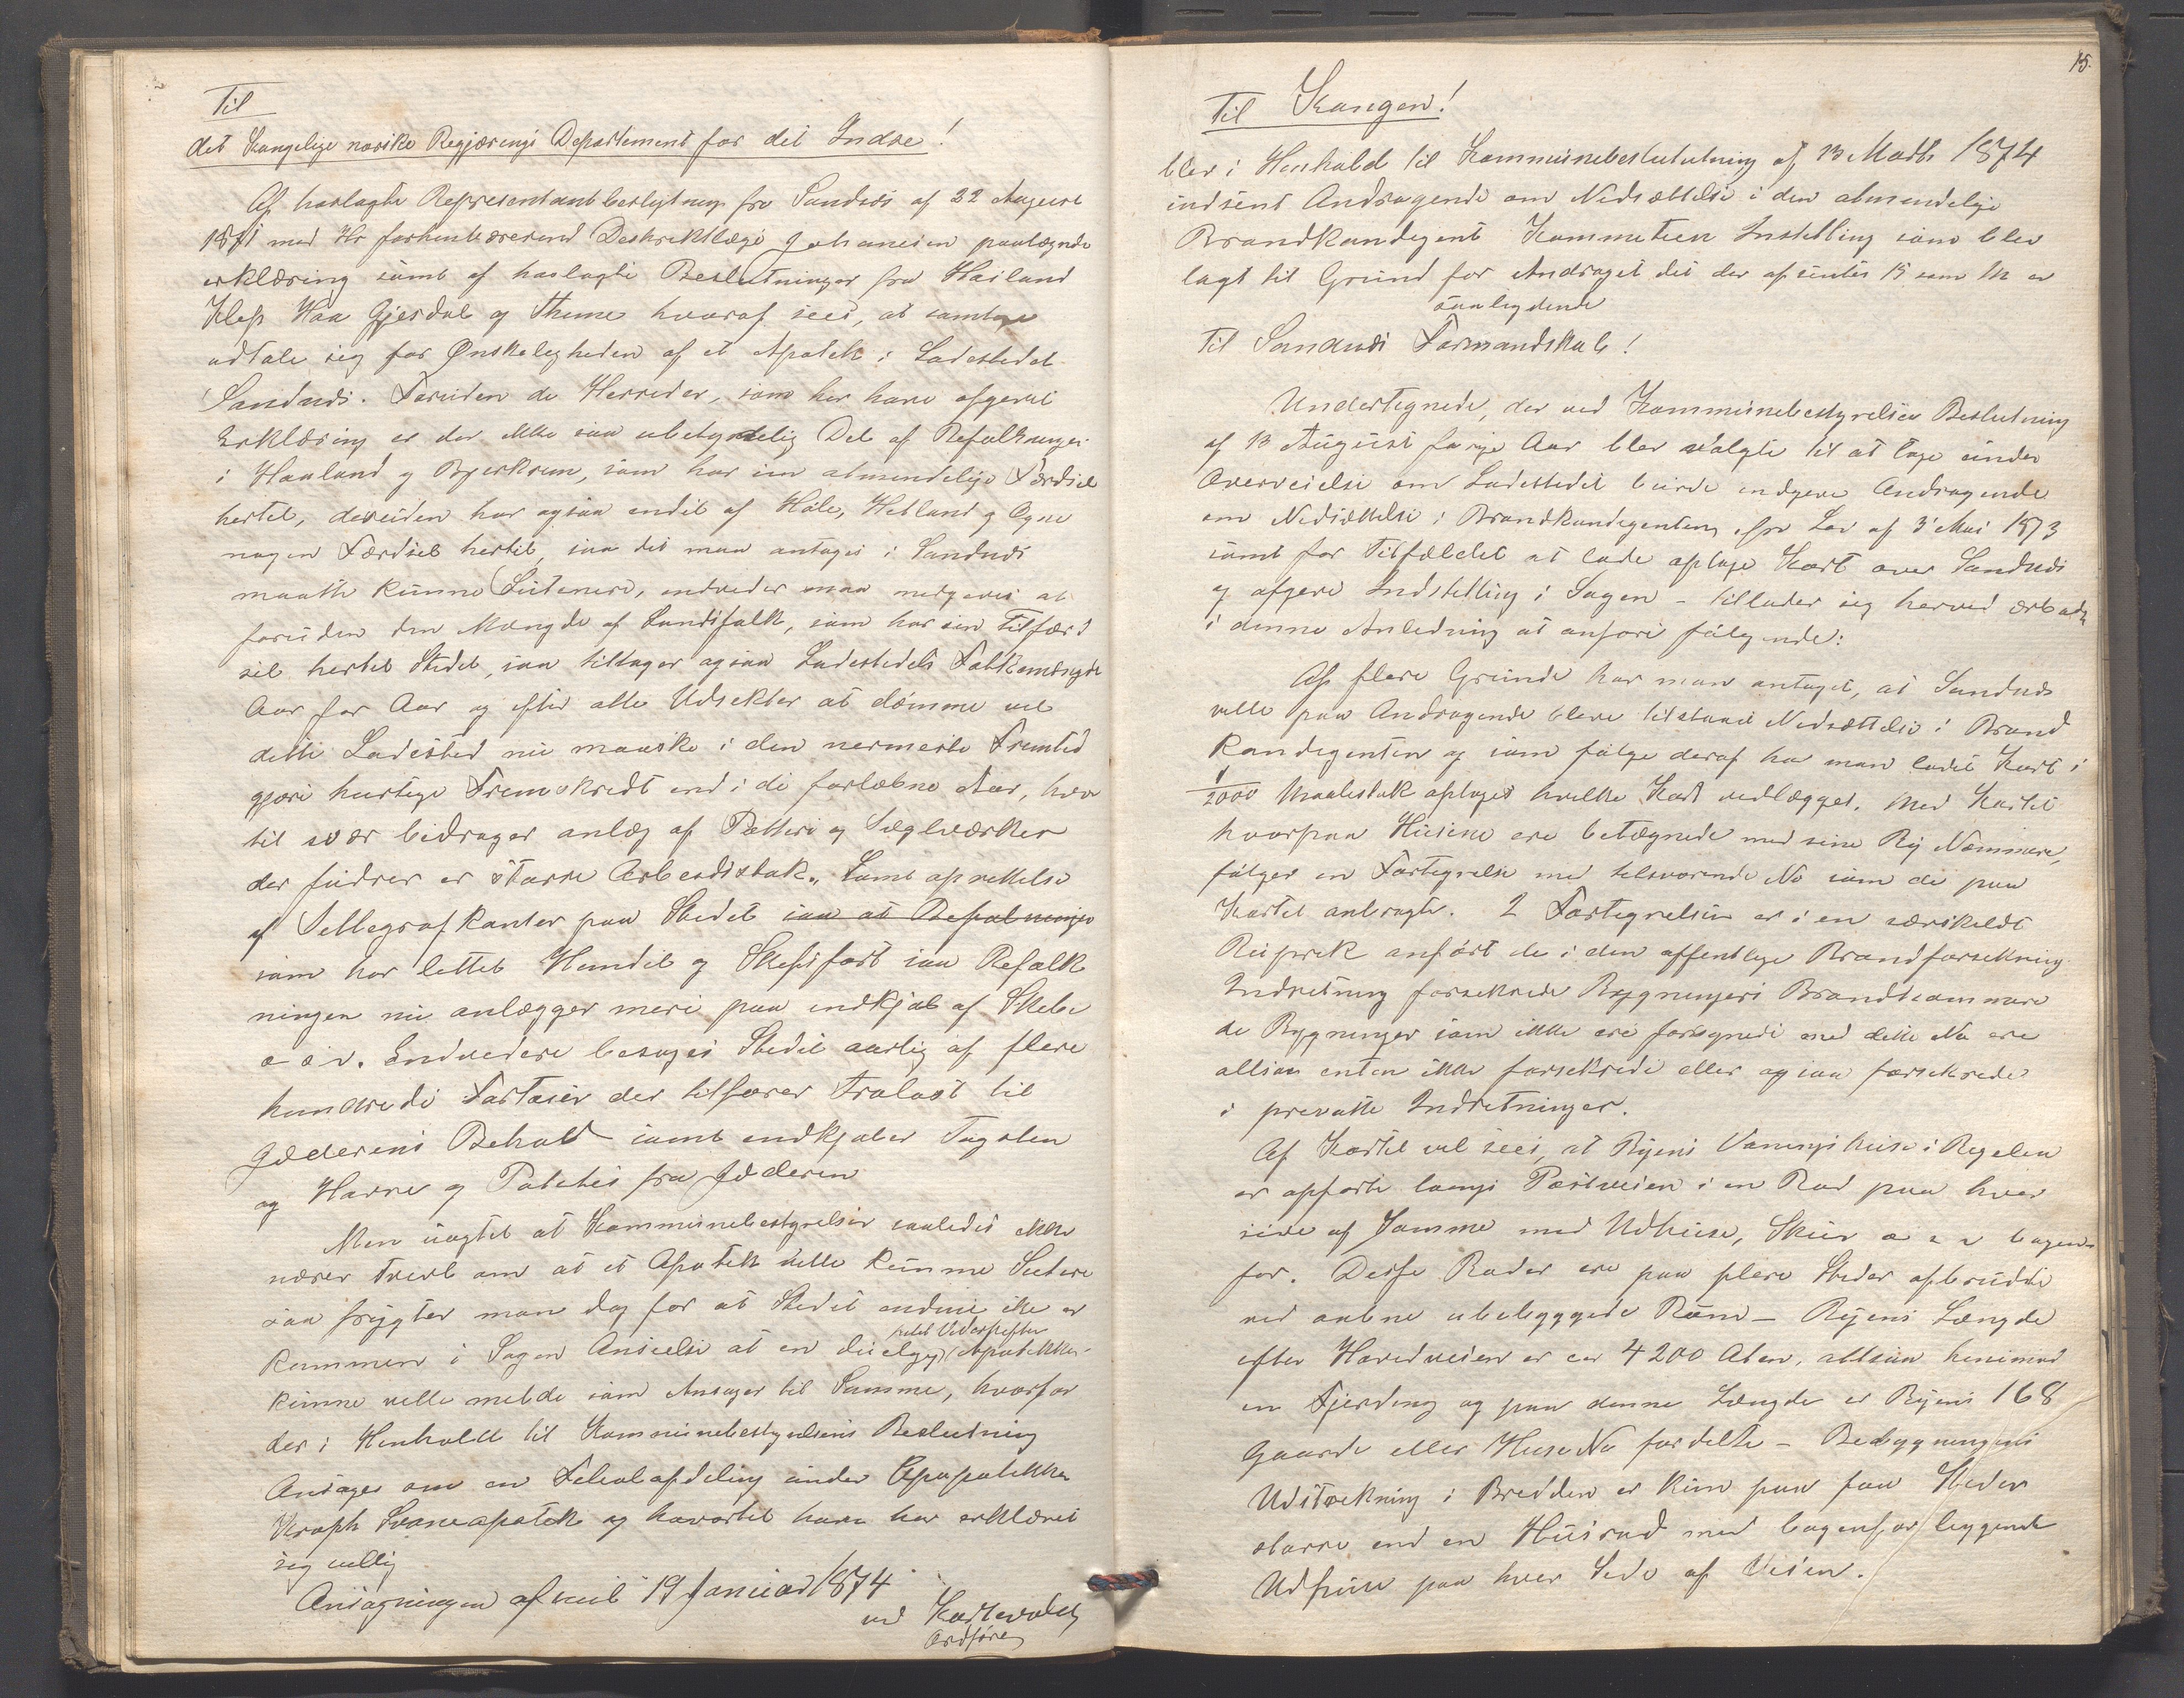 Til
det Kongelige norske Regjærings Departement for det Indre!
Af hoslagte Representantbeslutning fra Sandnæs af 22 August
1871 med Hr forhenværerend Destriktlæge Johanesen paategnde
erklæring samt af hoslagte Beslutninger fra Høiland
Klep Haa Gjesdal og Thime hvoraf sees, at samtlige
udtale sig for Ønskeligheden af et Apotek i Ladestedet
Sandnæs. Foruden de Herreder, som her have afgevet
Erklæring er der ikke saa ubetydelig Del af Befolkningen
i Haaland og Bjerkrem, som har sin almendelige Færdsel
hertel, desuden har ogsaa endel af Høle, Hetland og Ogne
nogen Færdsel hertil, saa det maa antages i Sandnæs
maatte kunne Subsistere, endveder maa medgeves at
foruden den Mængde af Landsfolk, som har sin Tilfærd
sel hertel Stedet, saa tiltager ogsaa Ladestedets Folkemengde
Aar for Aar og efter alle Udsekter at dømme vel
dette Ladested nu maaske i den nermeste Fremted
gjøre hurtige Fremskredt end i de forløbne Aar, hvor
til svær bidrager anlæg af Potteri og Teglværker
der fudrer er større Arbeidsstok, Samt oprettelse
af Tellegrafkontor paa Stedet saa at Befolkningen
som har lettet Handel og Skepsfart saa Befolk
ningen nu anlægger mere paa endkjøb af Skebe
o s v. Endvedere besøges Stedet aarlig af flere
hundrede Fartøier der tilfører Trælast til
Jæderens Behold samt endkjøber Tagsten
og Havre og Potetes fra Jæderen
Men uagtet at Kommunebestyrelsen saaledes ekke
nærer Tveil om at et Apotek velle kunne Sestere
saa frygter man dog for at Stedet endnu ikke er
kommen i Sagen Anseelse at en duelig Apotekker
kunne velle melde som Ansøger til Samme, hvorfor
der i Henhold til Kommunebestyrelsens Beslutning
Ansøges om en Felialafdeling under Apopotekker
Kroph Svaneapotek og hvortil han har erklæret
sig vellig
Ansøgningen afsent 19 Januar 1874
ved Kartevold
Ordfører
15.
Til Kongen!
blev i Henhold til Kommunebeslutning af 13 Marts 1874
indsent Andragende om Nedsættelse i den almendelige
Brandkondegent Kommeteen Instelling som blev
lagt til Grund for Andraget der afsentes 15 som er
saalydende
Til Sandnæs Formandskab!
Undertegnede, der ved Kommunebestyrelsen Beslutning
af 13 August forige Aar blev valgte til at tage under
Overveielse om Ladestedet burde indgeve Andragende
om Nedsættelse i Brandkondegenten efter Lov af 3 Mai 1873
samt for Tilfældet at lade optage Kart over Sandnæs
og afgeve Indstelling i Sagen - tillader sig herved ærbødg
i denne Anledning at anføre følgende:
Af flere Grunde har man antaget, at Sandnæs
velle paa Andragende bleve tilstaaet Nedsættelse i Brand
kondegenten og som følge deraf har man ladet Kart i
1/2000 Maalestok optages hvilke Kart vedlægges. Med Kartet
hvorpaa Husene ere betegnede med sine By Nommere,
følger en Fortegnelse med telsvarende No som de paa
Kartet anbragte. I Fortegnelsen er i en særskeldt
Rubprek anført de i den offentlege Brandforsekring
Indretning forsekrede Bygningers Brandnommere
de Bygninger som ikke ere forsynede med dette No ere
altsaa enten ikke forsekrede eller ogsaa forsekrede
i prevatte Indretninger.
Af Kartet vel sees, at Byens Vaaningshuse i Regelen
er opførte langs Postveien i en Rad paa hver
side af Samme med Udhuse, Skur o s v bagen
for. Desse Rader ere paa flere Steder afbrudte
ved aabne ubebyggede Rom - Byens Længde
efter Hovedveien er ca 4200 Alen, altsaa henimod
en Fjerding og paa denne Længde er Byens 168
Gaarde eller Huse No fordelte - Bebygningens
Udstrekning i Bredden er kun paa faa Steder
større end en Husrad med bagenfor leggende
Udhuse paa hver Sede af Veien.